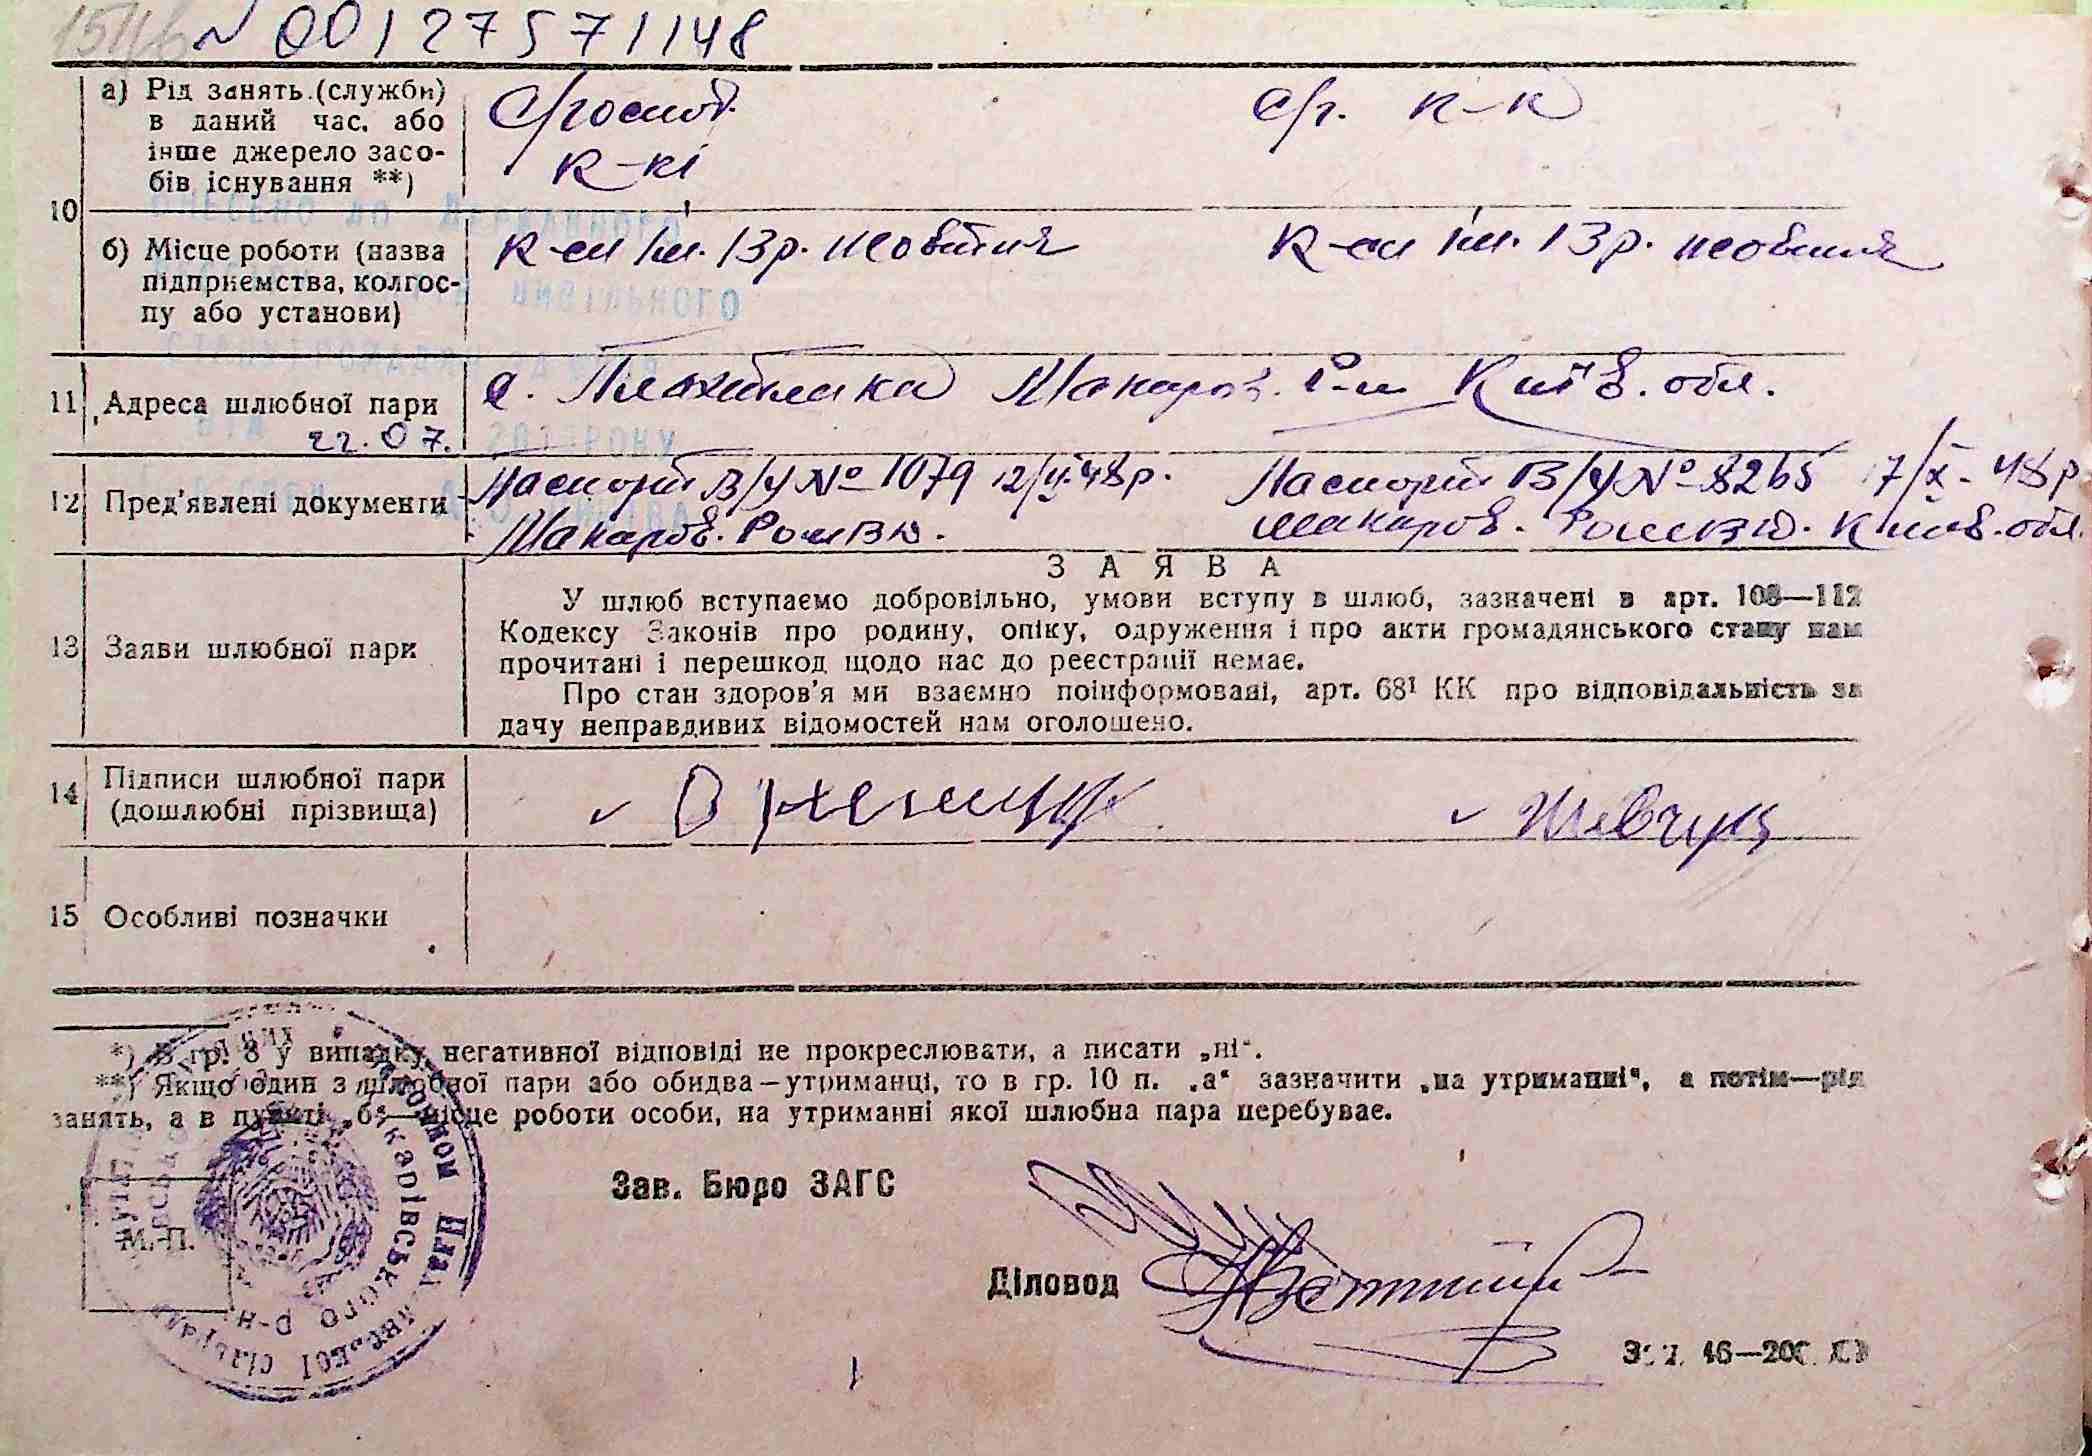 N 00127571148
а) Рід занять (служби) в даний час, або інше джерело засобів існування **)
с/господ. к-кі
с/г. к-к
10
б) Місце роботи (назва підприємства, колгоспу або установи)
к-сп ім. 13 р. жовтня
к-сп ім. 13 р. жовтня
11 Адреса шлюбної пари
с. Плахтянка Макарів. р-н Київ. обл.
22.07.
12 Пред'явлені документи
Паспорт В/У № 1079 48 р.
Паспорт В/У № 8265 17/X-48 р
Макаров. РОМВД.
Макаров. РОМВД. Київ. обл.
ЗАЯВА
13 Заяви шлюбної пари
У шлюб вступаємо добровільно, умови вступу в шлюб, зазначені в арт. 108—112
Кодексу Законів про родину, опіку, одруження і про акти громадянського стану нам
прочитані і перешкод щодо нас до реєстрації немає.
Про стан здоров'я ми взаємно поінформовані, арт. 68¹ КК про відповідальність за
дачу неправдивих відомостей нам оголошено.
14 Підписи шлюбної пари
(дошлюбні прізвища)
Шевчук
15 Особливі позначки
*) В гр. 8 у випадку негативної відповіді не прокреслювати, а писати „ні“.
**) Якщо один з шлюбної пари або обидва—утриманці, то в гр. 10 п. „а“ зазначити „на утриманні“, а потім—рід
занять, а в пункті „б“—місце роботи особи, на утриманні якої шлюбна пара перебуває.
Зав. Бюро ЗАГС
М. П.
Діловод